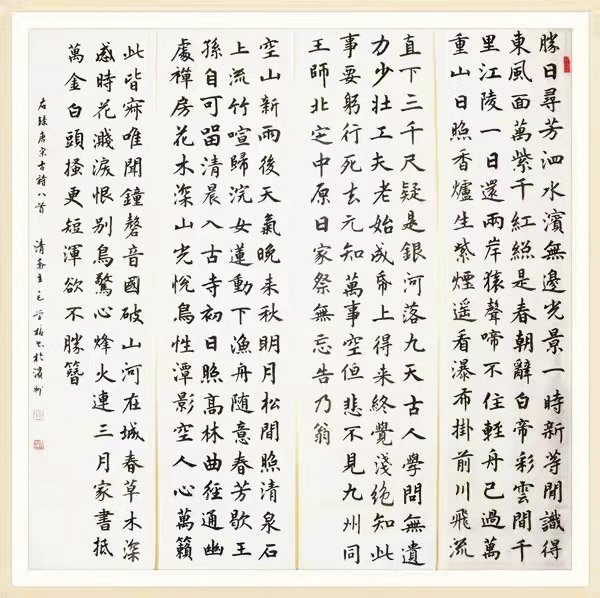 勝日尋芳泗水濱無邊光景一時新等閒識得
東風面萬紫千紅總是春朝辭白帝彩雲間千
里江陵一日還兩岸猿聲啼不住輕舟已過萬
重山日照香爐生紫煙遥看瀑布掛前川飛流
直下三千尺疑是銀河落九天古人學問無遺
力少壯工夫老始成帋上得来終覺淺絶知此
事要躬行死去元知萬事空但悲不見九州同
王師北定中原日家祭無忘告乃翁
空山新雨後天氣晚来秋明月松間照清泉石
上流竹喧歸浣女蓮動下漁舟随意春芳歇王
孫自可留清晨入古寺初日照高林曲徑通幽
處禪房花木深山光悅鳥性潭影空人心萬籟
此皆寂唯聞鐘磬音國破山河在城春草木深
感時花濺淚恨別鳥驚心烽火連三月家書抵
萬金白頭搔更短渾欲不勝簪
右録唐宋古詩八首